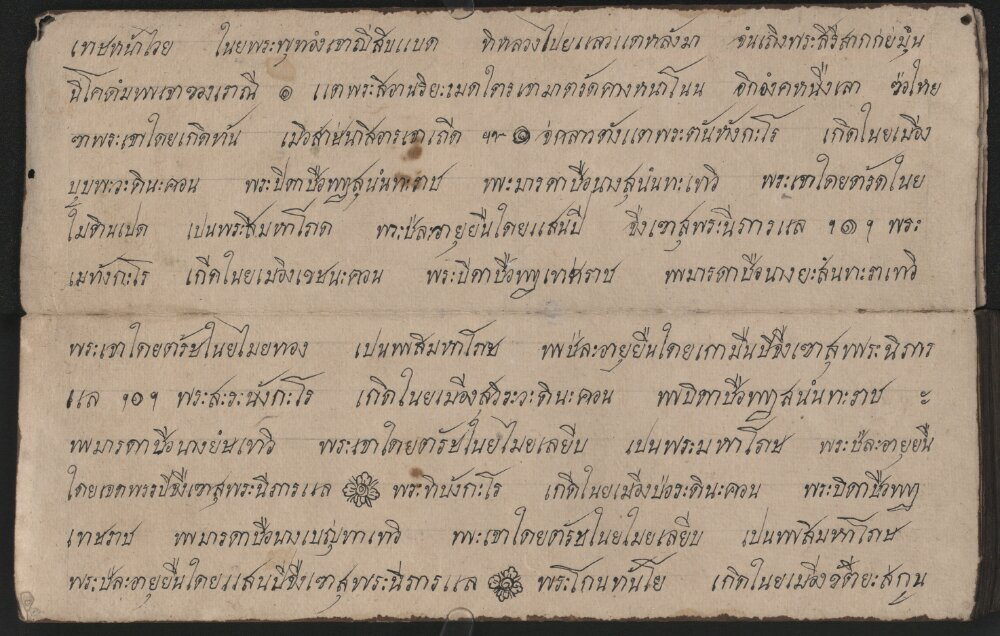 เทษหน้าไวย ในยพระพุทอํงเจาณีสืบแบด ทิหลวงไปยแลวแตหลังมา จํนเถิงพระสิริสากกยมุน
นีโคดํมพพเจาของเราณี ๑ แต่พระสิอานริยะเมดไตรเจามาตรัดคางหน้าโนน อิกอํงคหนึ่งเลา
พระเจาใดยเกิดทัน เมิอสาษ่นาสิ่อารเจาเถิด ๚๛ ๑ จํกลาวทังแตพระตันหังกะโร เกิดในยเมือง
บุบพะวะดินะคอน พระบิดาชืวพญาสุนํนทะราช พพะมารดาชืวนางสุนํนทะเทวิ พระเจาใดยตรัดในย
ไม้ตินเปด เปนพระสิมหาโภด พระชํละอายุยืนใดยแสนปี จึ่งเขาสุพระนิราารแล ๆ๑ๆ พระ
เมทังกะโร เกีดในยเมืองเวชนะคอน พระบิดาชืวพญาเทษราช พพมารดาชืวนางยะสันทะราเทวิ
พระเจาใดยตรัษในยไมยทอง เปนพพสิมหาโภษ พพชํละอายุยืนใดยเกามืนปีจึ่งเขาสุพพระนิราาร
แล ๆ๑ๆ พระสะระนังกะโร เกิดในยเมืองสวิระวะดินะคอน พพบิดาชืวพญาสุนํนทะราช ะ
พพมารดาชืวนางยํษเทวิ พระเจาใดยตรัษในยไมยเลยีบ เปนพระมหาโภษ พระชํละอายุยนื
ใดยเจดพรรปีจึ่งเขาสุพระนิราารแล พระทิบังกะโร เกีดในยเมืองปอระดินะคอน พระบิดาชืวพญา
เทษราช พพมารดาชืวนางเบญทาเทวิ พพะเจาใดยตรัษในยไมยเลยีบ เปนพพสิมหาโภษ
พระชํละอายุยืนใดยแสนปีจึ่งเขาสุพระนิราารแล พระโกนทันโย เกิดในยเมือง